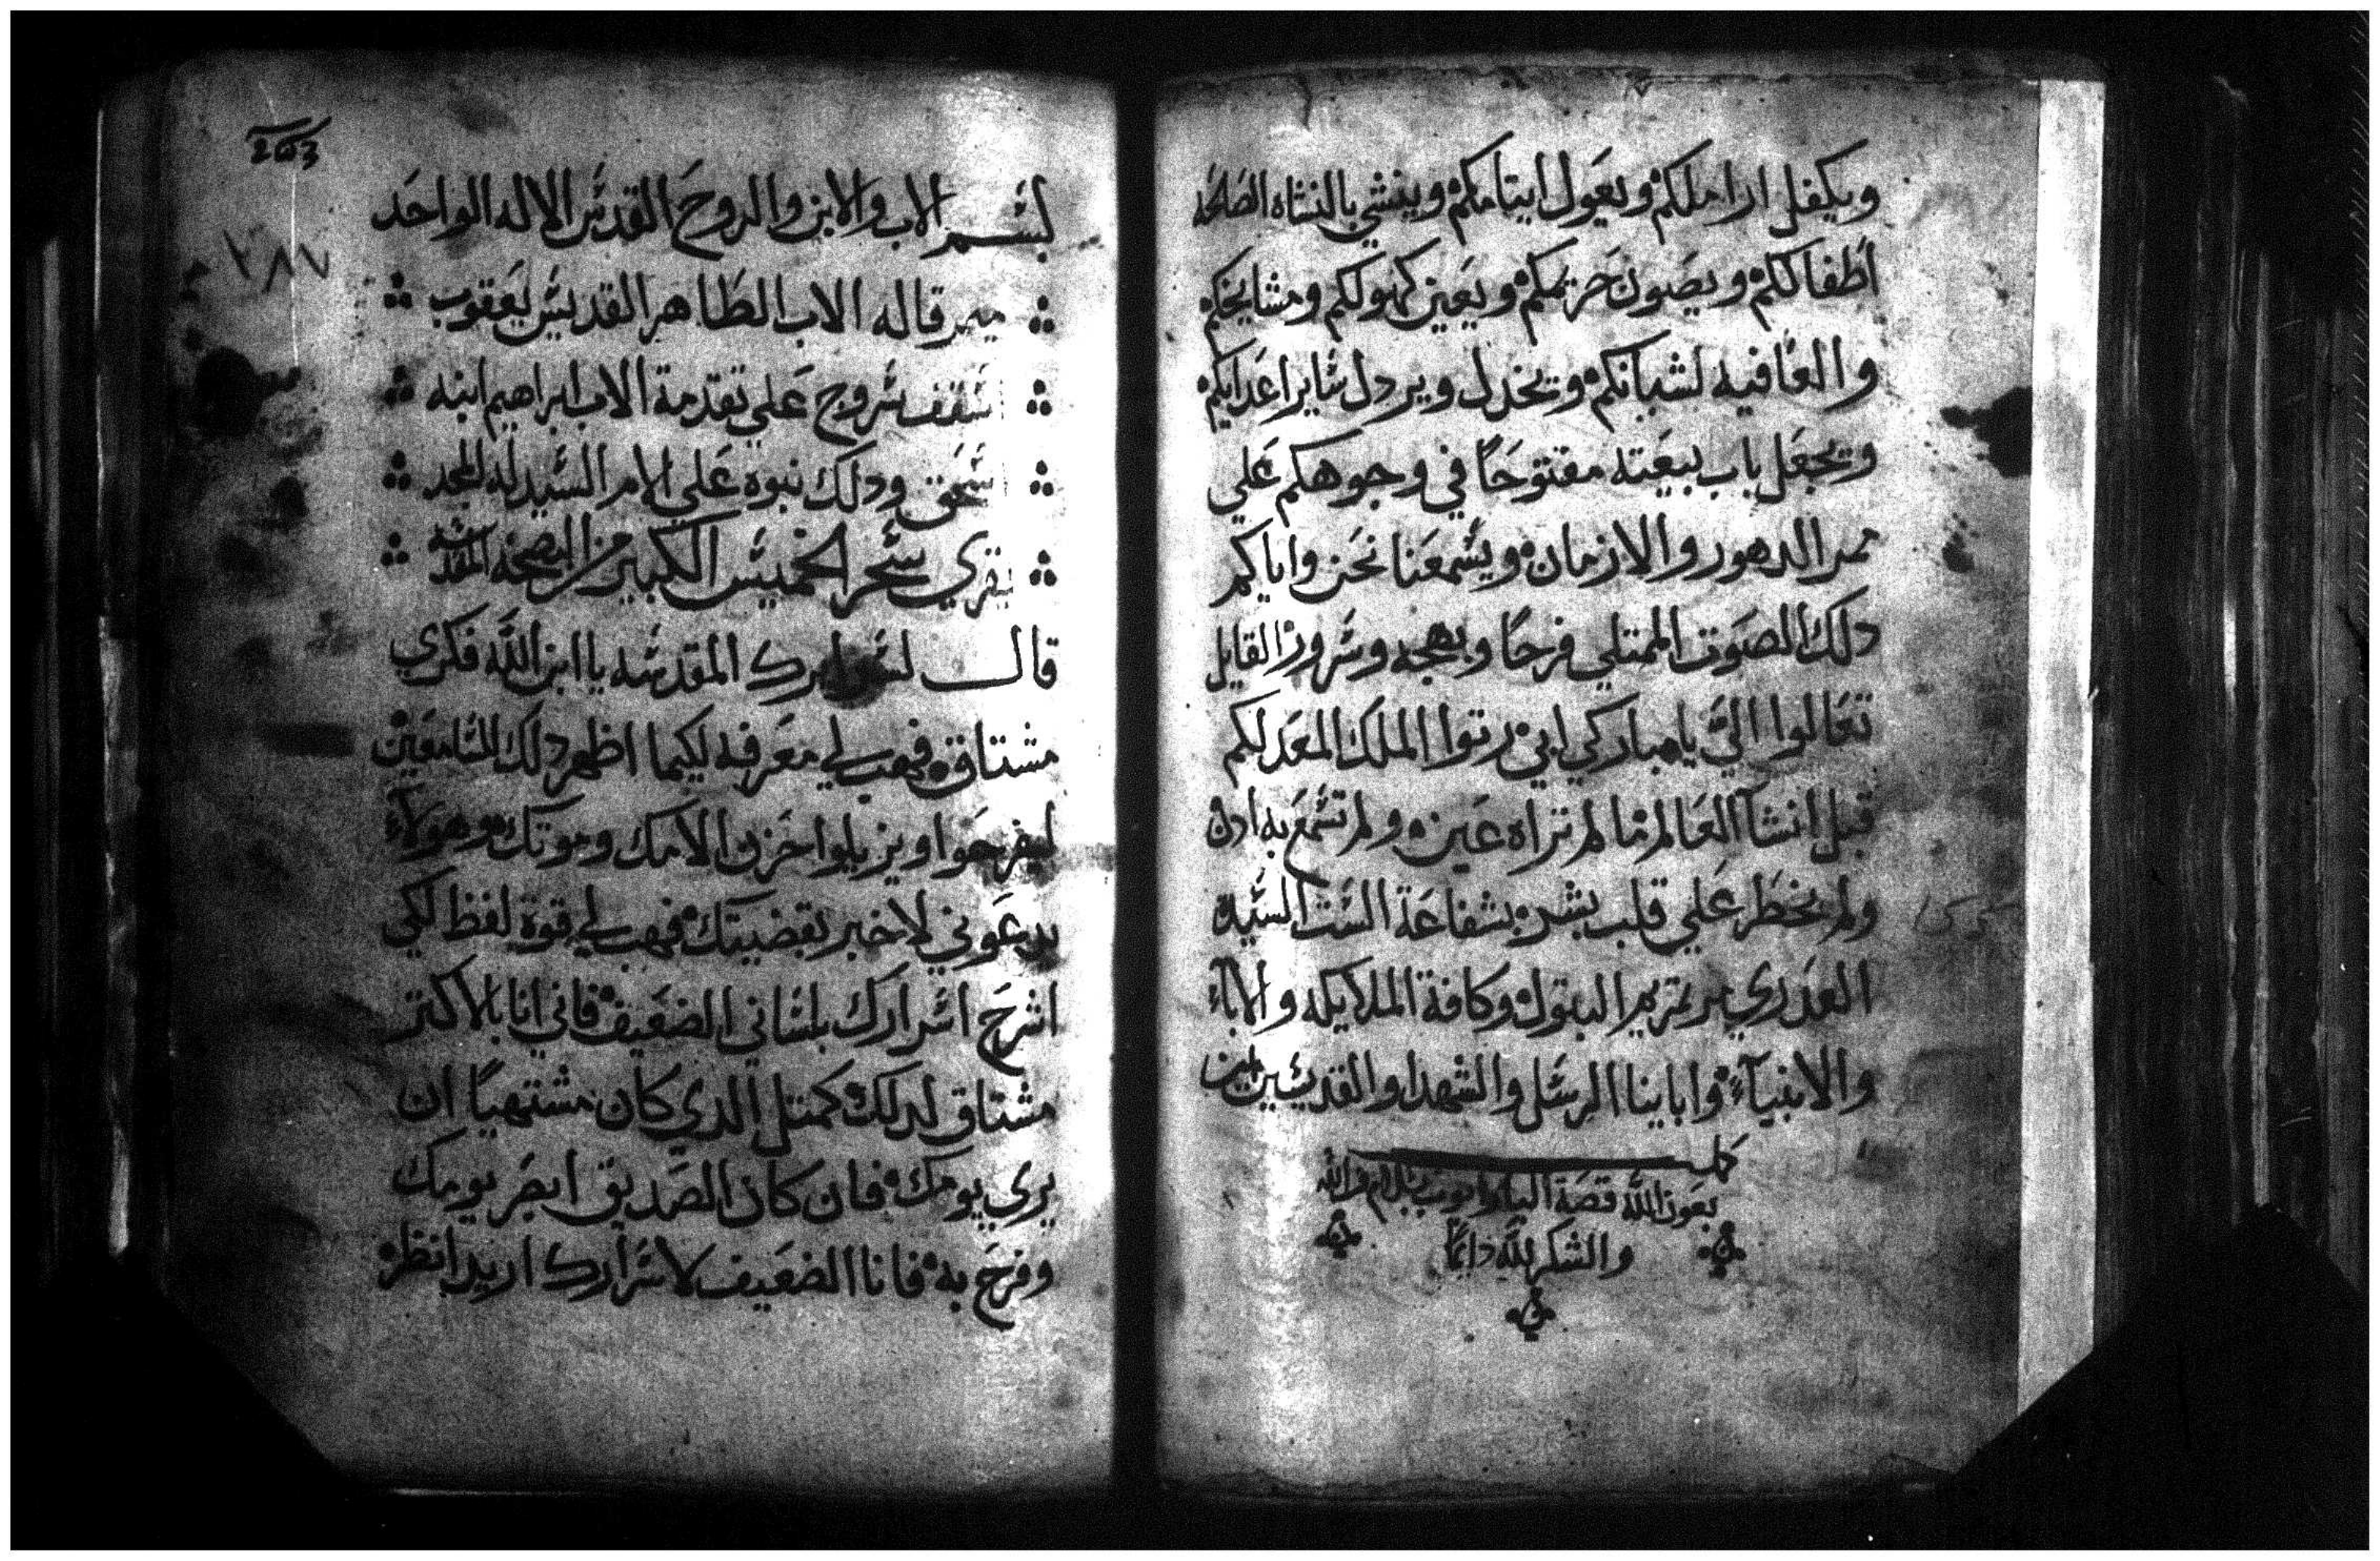 ويكفل اراملكم ويعول ايتامكم وينشي بالنشاه الصالحه
اطفالكم ويصون حريمكم ويعين كهولكم ومشايخكم
والعافيه لشبانكم ويخدل ويردل ساير اعدايكم
ويجعل باب بيعته مفتوحًا في وجوهكم علي
ممر الدهور والازمان ويسمعنا نحن واياكم
دلك الصوت الممتلي فرحًا وبهجه وسرور القايل
تعالوا اليَّ يا مباركي ابي رتوا الملك المعد لكم
قبل انشآ العالم ما لم تراه عين ولم تسمع به ادن
ولم يخطر علي قلب بشر بشفاعة الست السيدة
العدري مرتمريم البتول وكافة الملايكه والاباء
والانبيآء وابايناالرسل والشهدا والقديسين امين
كمل
بعون الله قصة البار ايوب بسلام من الله
والشكر لله دايمًا
203
٢٨٧
بسم الاب والابن والروح القدس الاله الواحد
ميمر قاله الاب الطاهر القديس يعقوب
اسقف سروج علي تقدمة الاب ابراهيم ابنه
اسحق ودلك نبوه علي الام السيد له المجد
يقري سحر الخميس الكبير من البصخه المقدسه
قال لسرايرك المقدسه يا ابن الله فكري
مشتاق فهب لي معرفه لكيما اظهر دلك للسامعين
ليفرحوا ويزيلوا حزن الامك وموتك وهولاء
يدعوني لاخبر بقضيتك فهب لي قوة لفظ لكي
اشرح اسرارك بلساني الضعيف فاني انا بالاكتر
مشتاق لدلك كمتل الدي كان مشتهيًا ان
يري يومك فان كان الصديق ابصر يومك
وفرح به فانا الضعيف لاسرارك اريد انظر